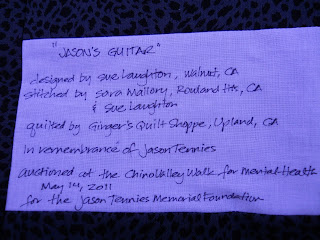 "JASON'S GUITAR"
designed by Sue Laughton, Walnut, CA
stitched by Sara Mallory, Rowland Hts, CA
& Sue Laughton
quilted by Ginger's Quilt Shoppe, Upland, CA
In remembrance of Jason Tennies
auctioned at the Chino Valley Walk for Mental Health
May 14, 2011
for the Jason Tennies Memorial Foundation